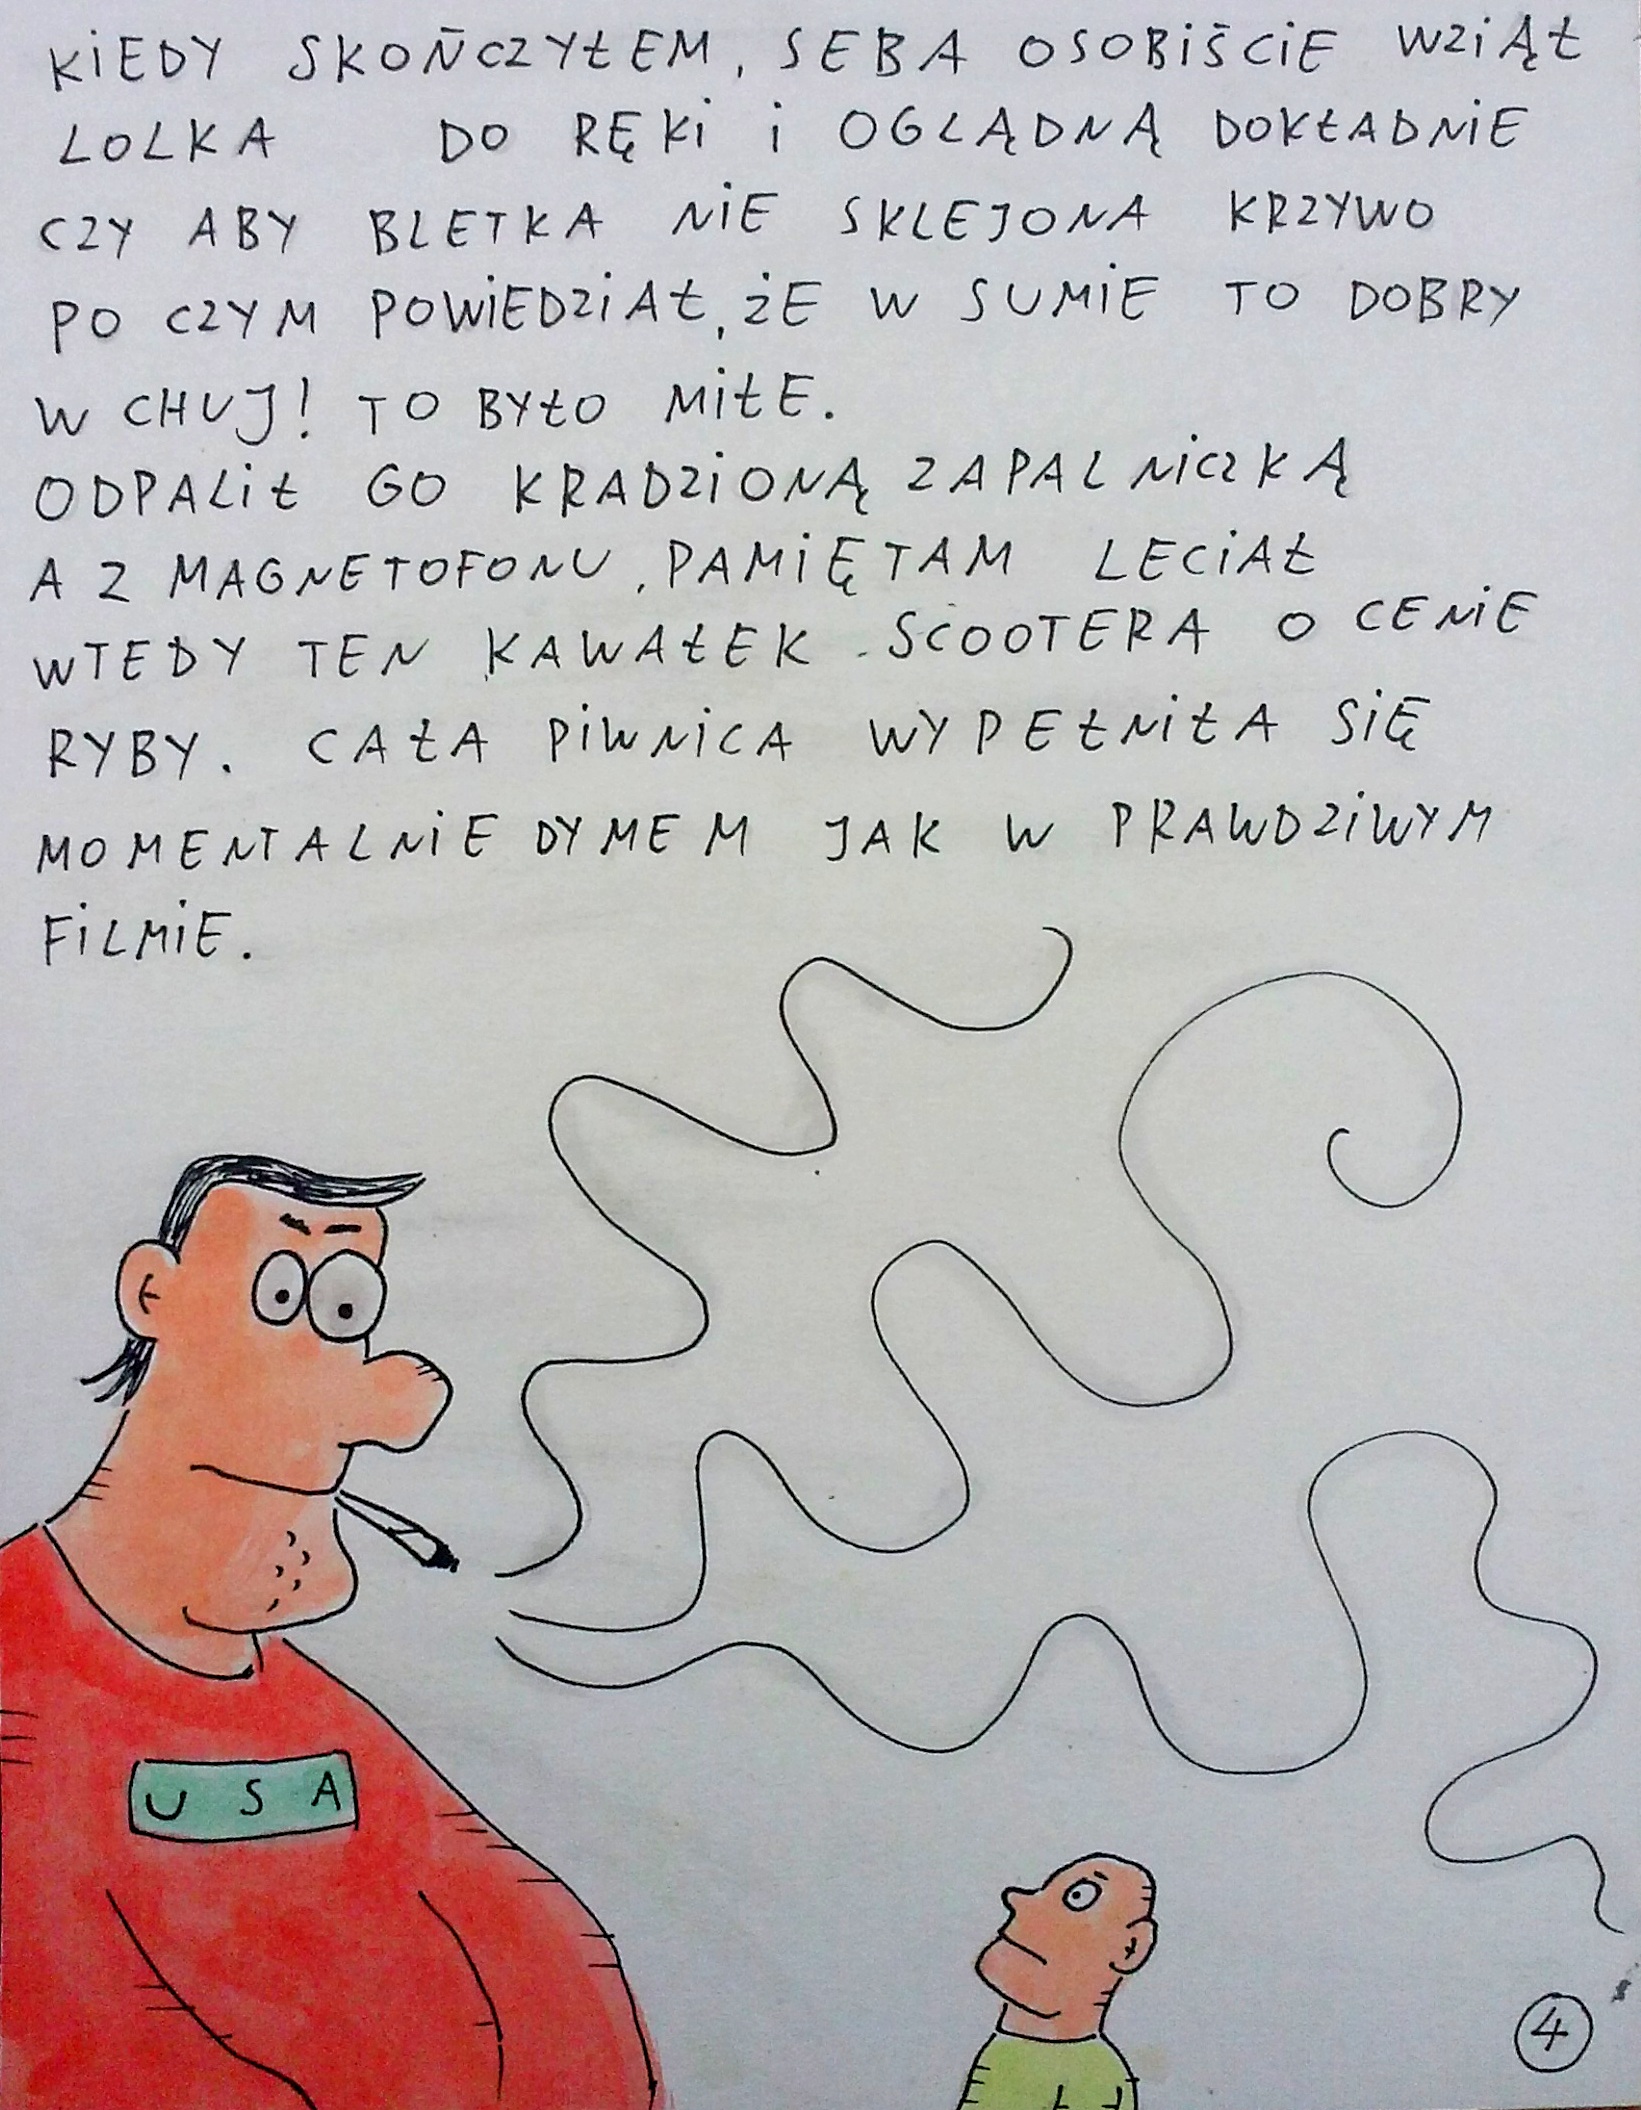 KIEDY SKOŃCZYŁEM, SEBA OSOBIŚCIE WZIĄŁ
LOLKA DO RĘKI I OGLĄDNĄ DOKŁADNIE
CZY ABY BLETKA NIE SKLEJONA KRZYWO
PO CZYM POWIEDZIAŁ, ŻE W SUMIE TO DOBRY
W CHUJ! TO BYŁO MIŁE.
ODPALIŁ GO KRADZIONĄ ZAPALNICZKĄ
A Z MAGNETOFONU, PAMIĘTAM LECIAŁ
WTEDY TEN KAWAŁEK SCOOTERA O CENIE
RYBY. CAŁA PIWNICA WYPEŁNIŁA SIĘ
MOMENTALNIE DYMEM JAK W PRAWDZIWYM
FILMIE.
USA
4